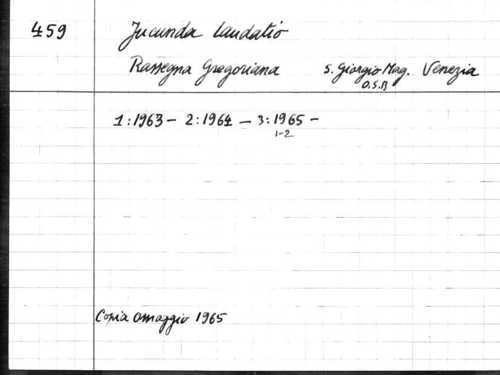 459
Jucunda laudatio
Rassegna Gregoriana S. Giorgio Mag. Venezia
O.S.B
1:1963 - 2:1964 - 3:1965 -
1-2
Copia omaggio 1965